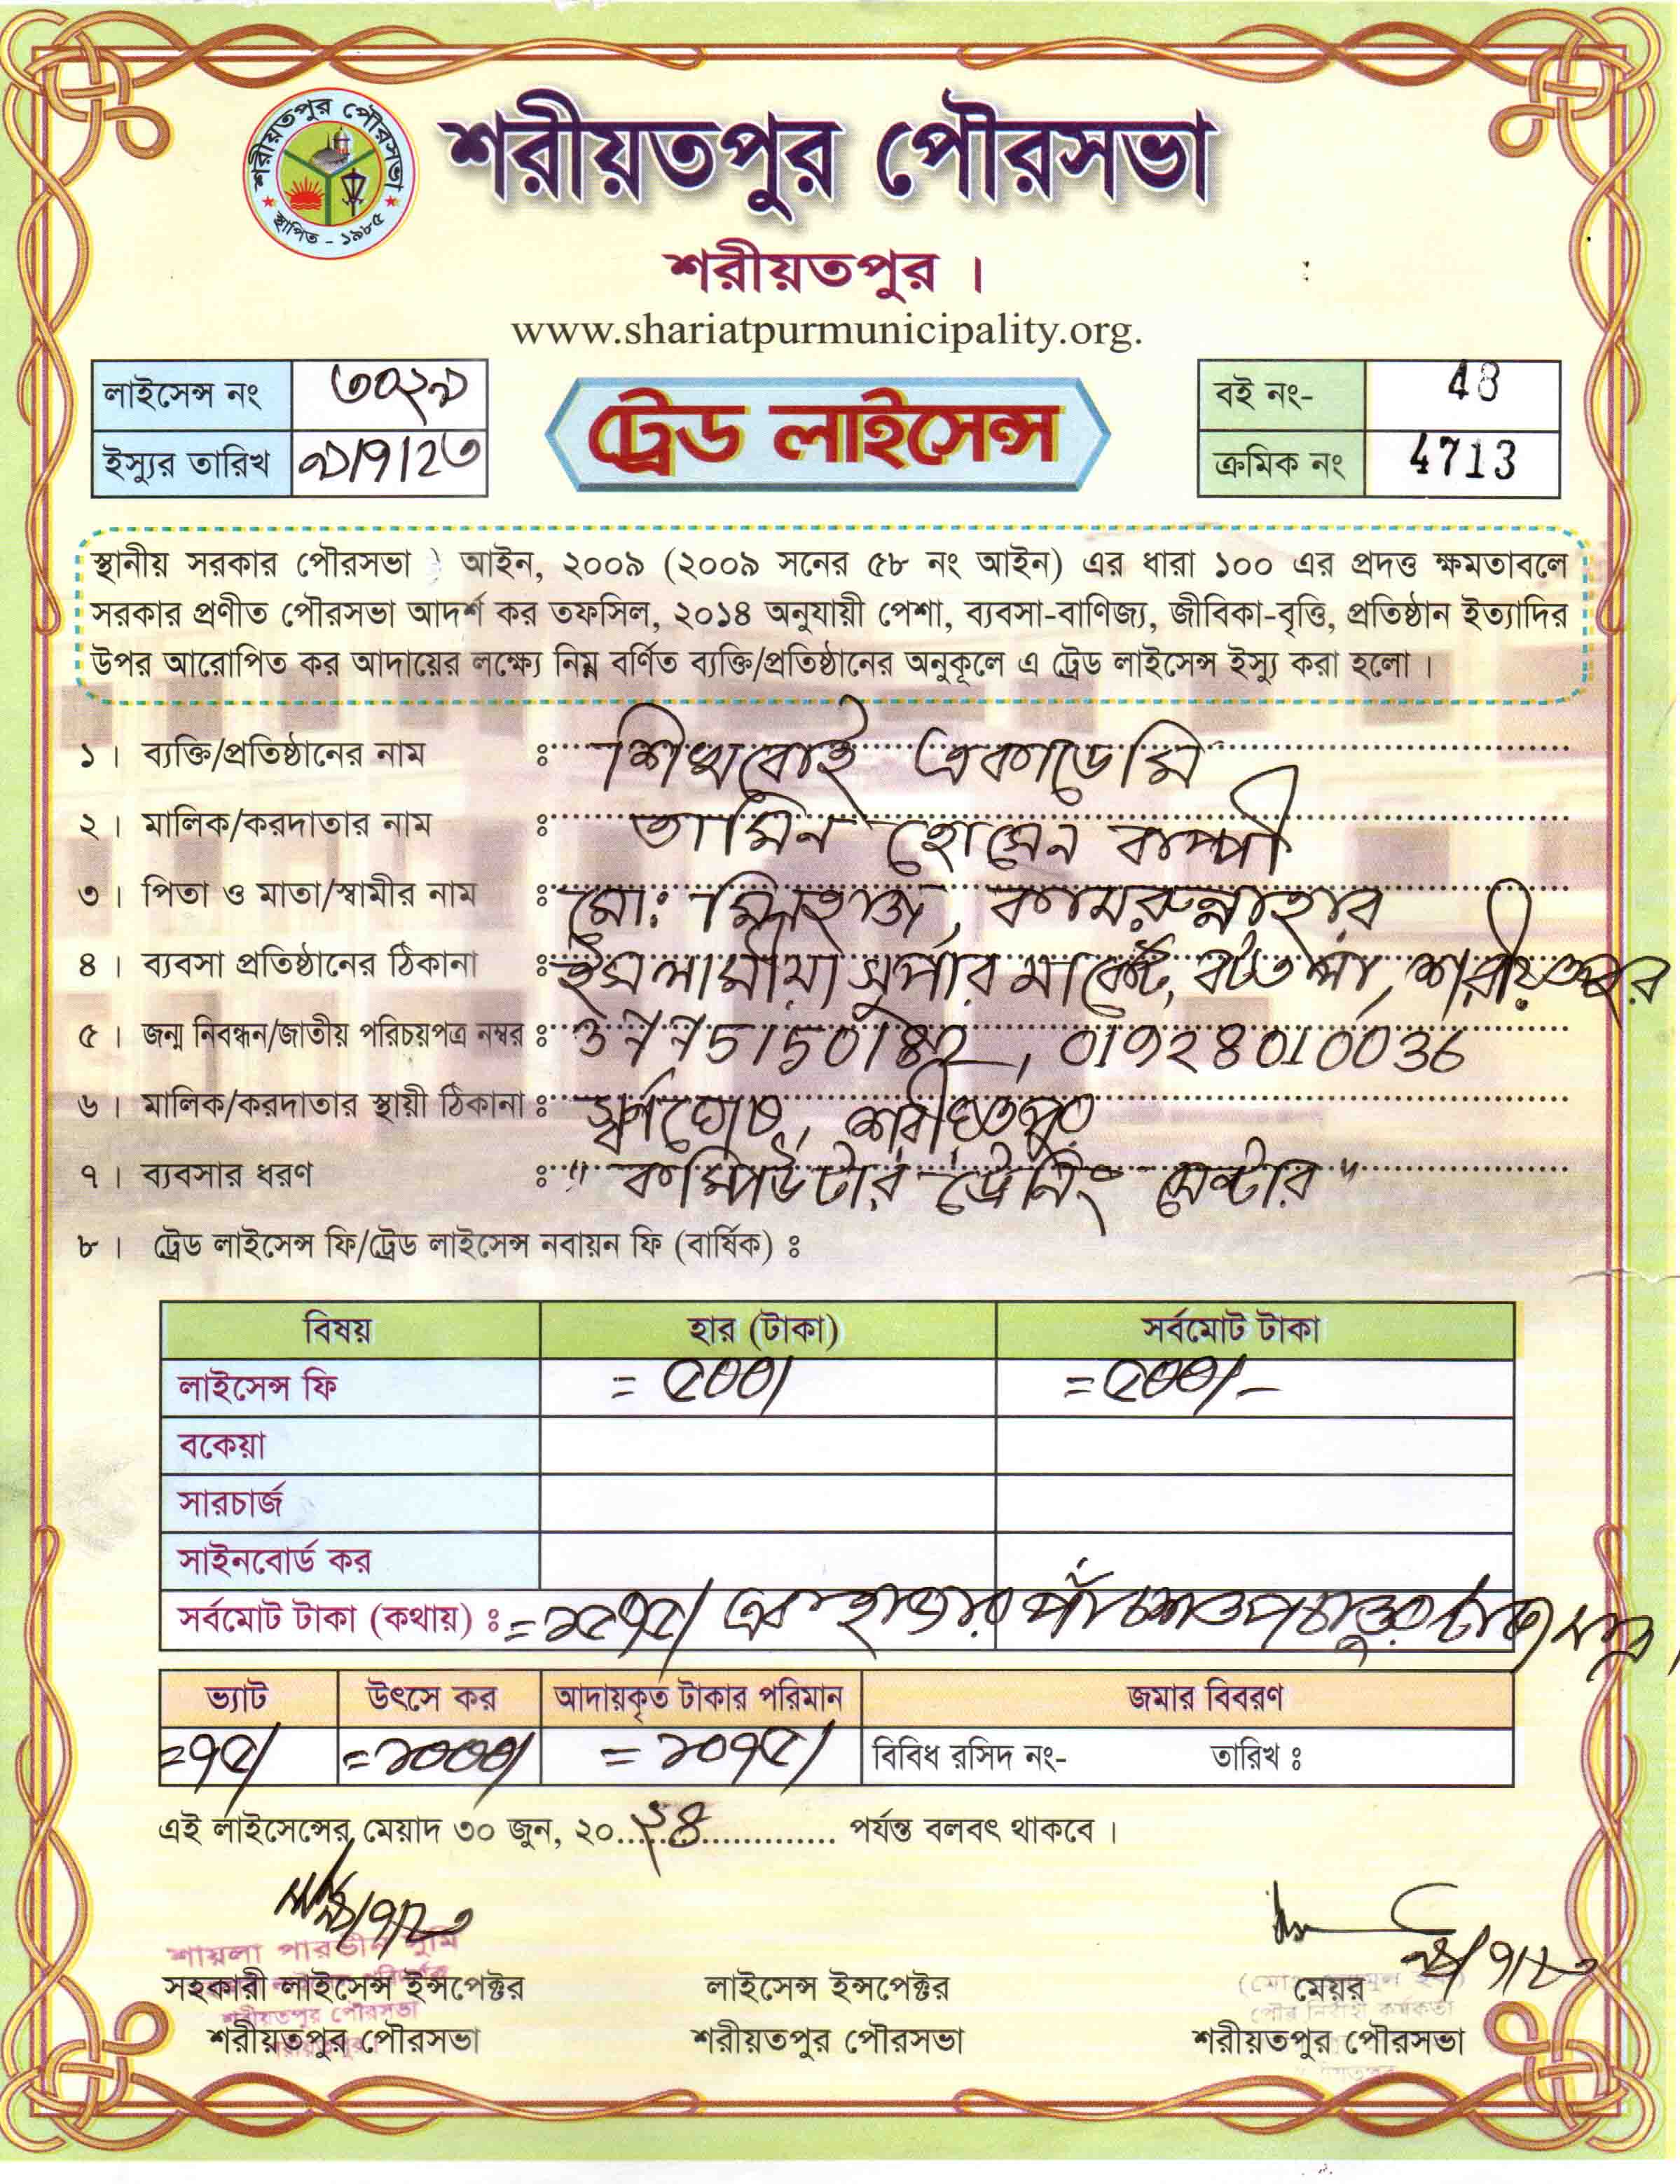 শরীয়তপুর পৌরসভা
স্থাপিত - ১৯৮৫
শরীয়তপুর পৌরসভা
শরীয়তপুর ।
www.shariatpurmunicipality.org.
লাইসেন্স নং ৩০২৯
ইস্যুর তারিখ ৯/৭/২৩
ট্রেড লাইসেন্স
বই নং- 48
ক্রমিক নং 4713
স্থানীয় সরকার পৌরসভা ) আইন, ২০০৯ (২০০৯ সনের ৫৮ নং আইন) এর ধারা ১০০ এর প্রদত্ত ক্ষমতাবলে
সরকার প্রণীত পৌরসভা আদর্শ কর তফসিল, ২০১৪ অনুযায়ী পেশা, ব্যবসা-বাণিজ্য, জীবিকা-বৃত্তি, প্রতিষ্ঠান ইত্যাদির
উপর আরোপিত কর আদায়ের লক্ষ্যে নিম্ন বর্ণিত ব্যক্তি/প্রতিষ্ঠানের অনুকূলে এ ট্রেড লাইসেন্স ইস্যু করা হলো ।
১ । ব্যক্তি/প্রতিষ্ঠানের নাম ঃ একাডেমি
২ । মালিক/করদাতার নাম ঃ তামিন হোসেন বাপ্পী
৩ । পিতা ও মাতা/স্বামীর নাম ঃ মো: মিনহাজ, কামরুন্নাহার
৪ । ব্যবসা প্রতিষ্ঠানের ঠিকানা ঃ ইসলামীয়া সুপার মার্কেট, বটতলা, শরীয়তপুর
৫ । জন্ম নিবন্ধন/জাতীয় পরিচয়পত্র নম্বর ঃ
৬ । মালিক/করদাতার স্থায়ী ঠিকানা ঃ স্বর্ণঘোষ, শরীয়তপুর
৭ । ব্যবসার ধরণ ঃ "কম্পিউটার ট্রেনিং সেন্টার"
৮ । ট্রেড লাইসেন্স ফি/ট্রেড লাইসেন্স নবায়ন ফি (বার্ষিক) ঃ
বিষয় হার (টাকা) সর্বমোট টাকা
লাইসেন্স ফি = ৫০০/ = ৫০০/-
বকেয়া
সারচার্জ
সাইনবোর্ড কর
সর্বমোট টাকা (কথায়) ঃ = ১৫৭৫/ এক হাজার পাঁচশত পচাত্তর টাকা মাত্র
ভ্যাট উৎসে কর আদায়কৃত টাকার পরিমান জমার বিবরণ
=৭৫/ =১০০০/ = ১০৭৫/ বিবিধ রসিদ নং- তারিখ ঃ
এই লাইসেন্সের মেয়াদ ৩০ জুন, ২০..২৪.. পর্যন্ত বলবৎ থাকবে ।
৯/৭/২৩
শায়লা পারভীন সুমি
সহকারী লাইসেন্স ইন্সপেক্টর লাইসেন্স ইন্সপেক্টর মেয়র
পৌর নির্বাহী কর্মকর্তা
শরীয়তপুর পৌরসভা
শরীয়তপুর পৌরসভা শরীয়তপুর পৌরসভা শরীয়তপুর পৌরসভা